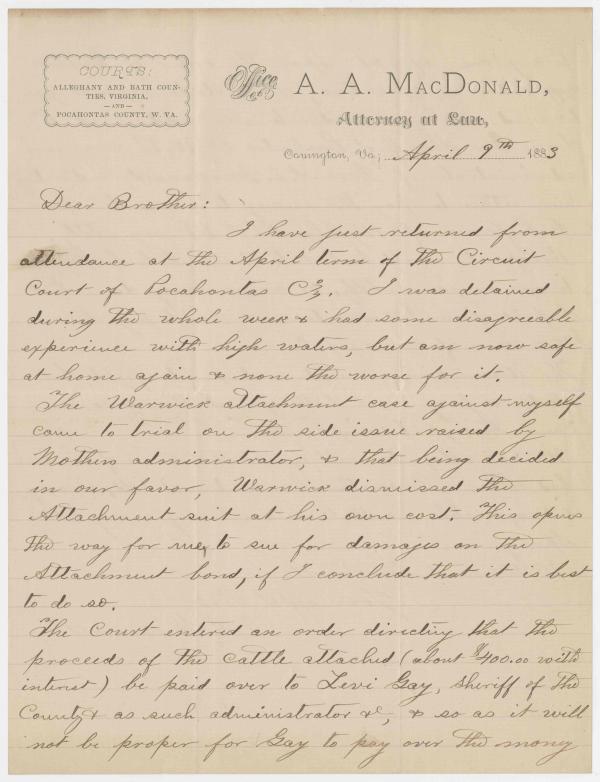 COURTS:
ALLEGHANY AND BATH COUN-
TIES, VIRGINIA,
—AND—
POCAHONTAS COUNTY, W. VA.
Office of A. A. MacDonald,
Attorney at Law,
Covington, Va., April 9th 1883
Dear Brother:
I have just returned from
attendance at the April term of the Circuit
Court of Pocahontas Co. I was detained
during the whole week & had some disagreeable
experience with high waters, but am now safe
at home again & none the worse for it.
The Warwick attachment case against myself
came to trial on the side issue raised by
Mothers administrator, & that being decided
in our favor, Warwick dismissed the
Attachment suit at his own cost. This opens
the way for me, to sue for damages on the
Attachment bond, if I conclude that it is best
to do so.
The Court entered an order directing that the
proceeds of the cattle attached (about $400.00 with
interest) be paid over to Levi Gay, sheriff of the
County & as such administrator &c, & so as it will
not be proper for Gay to pay over the money